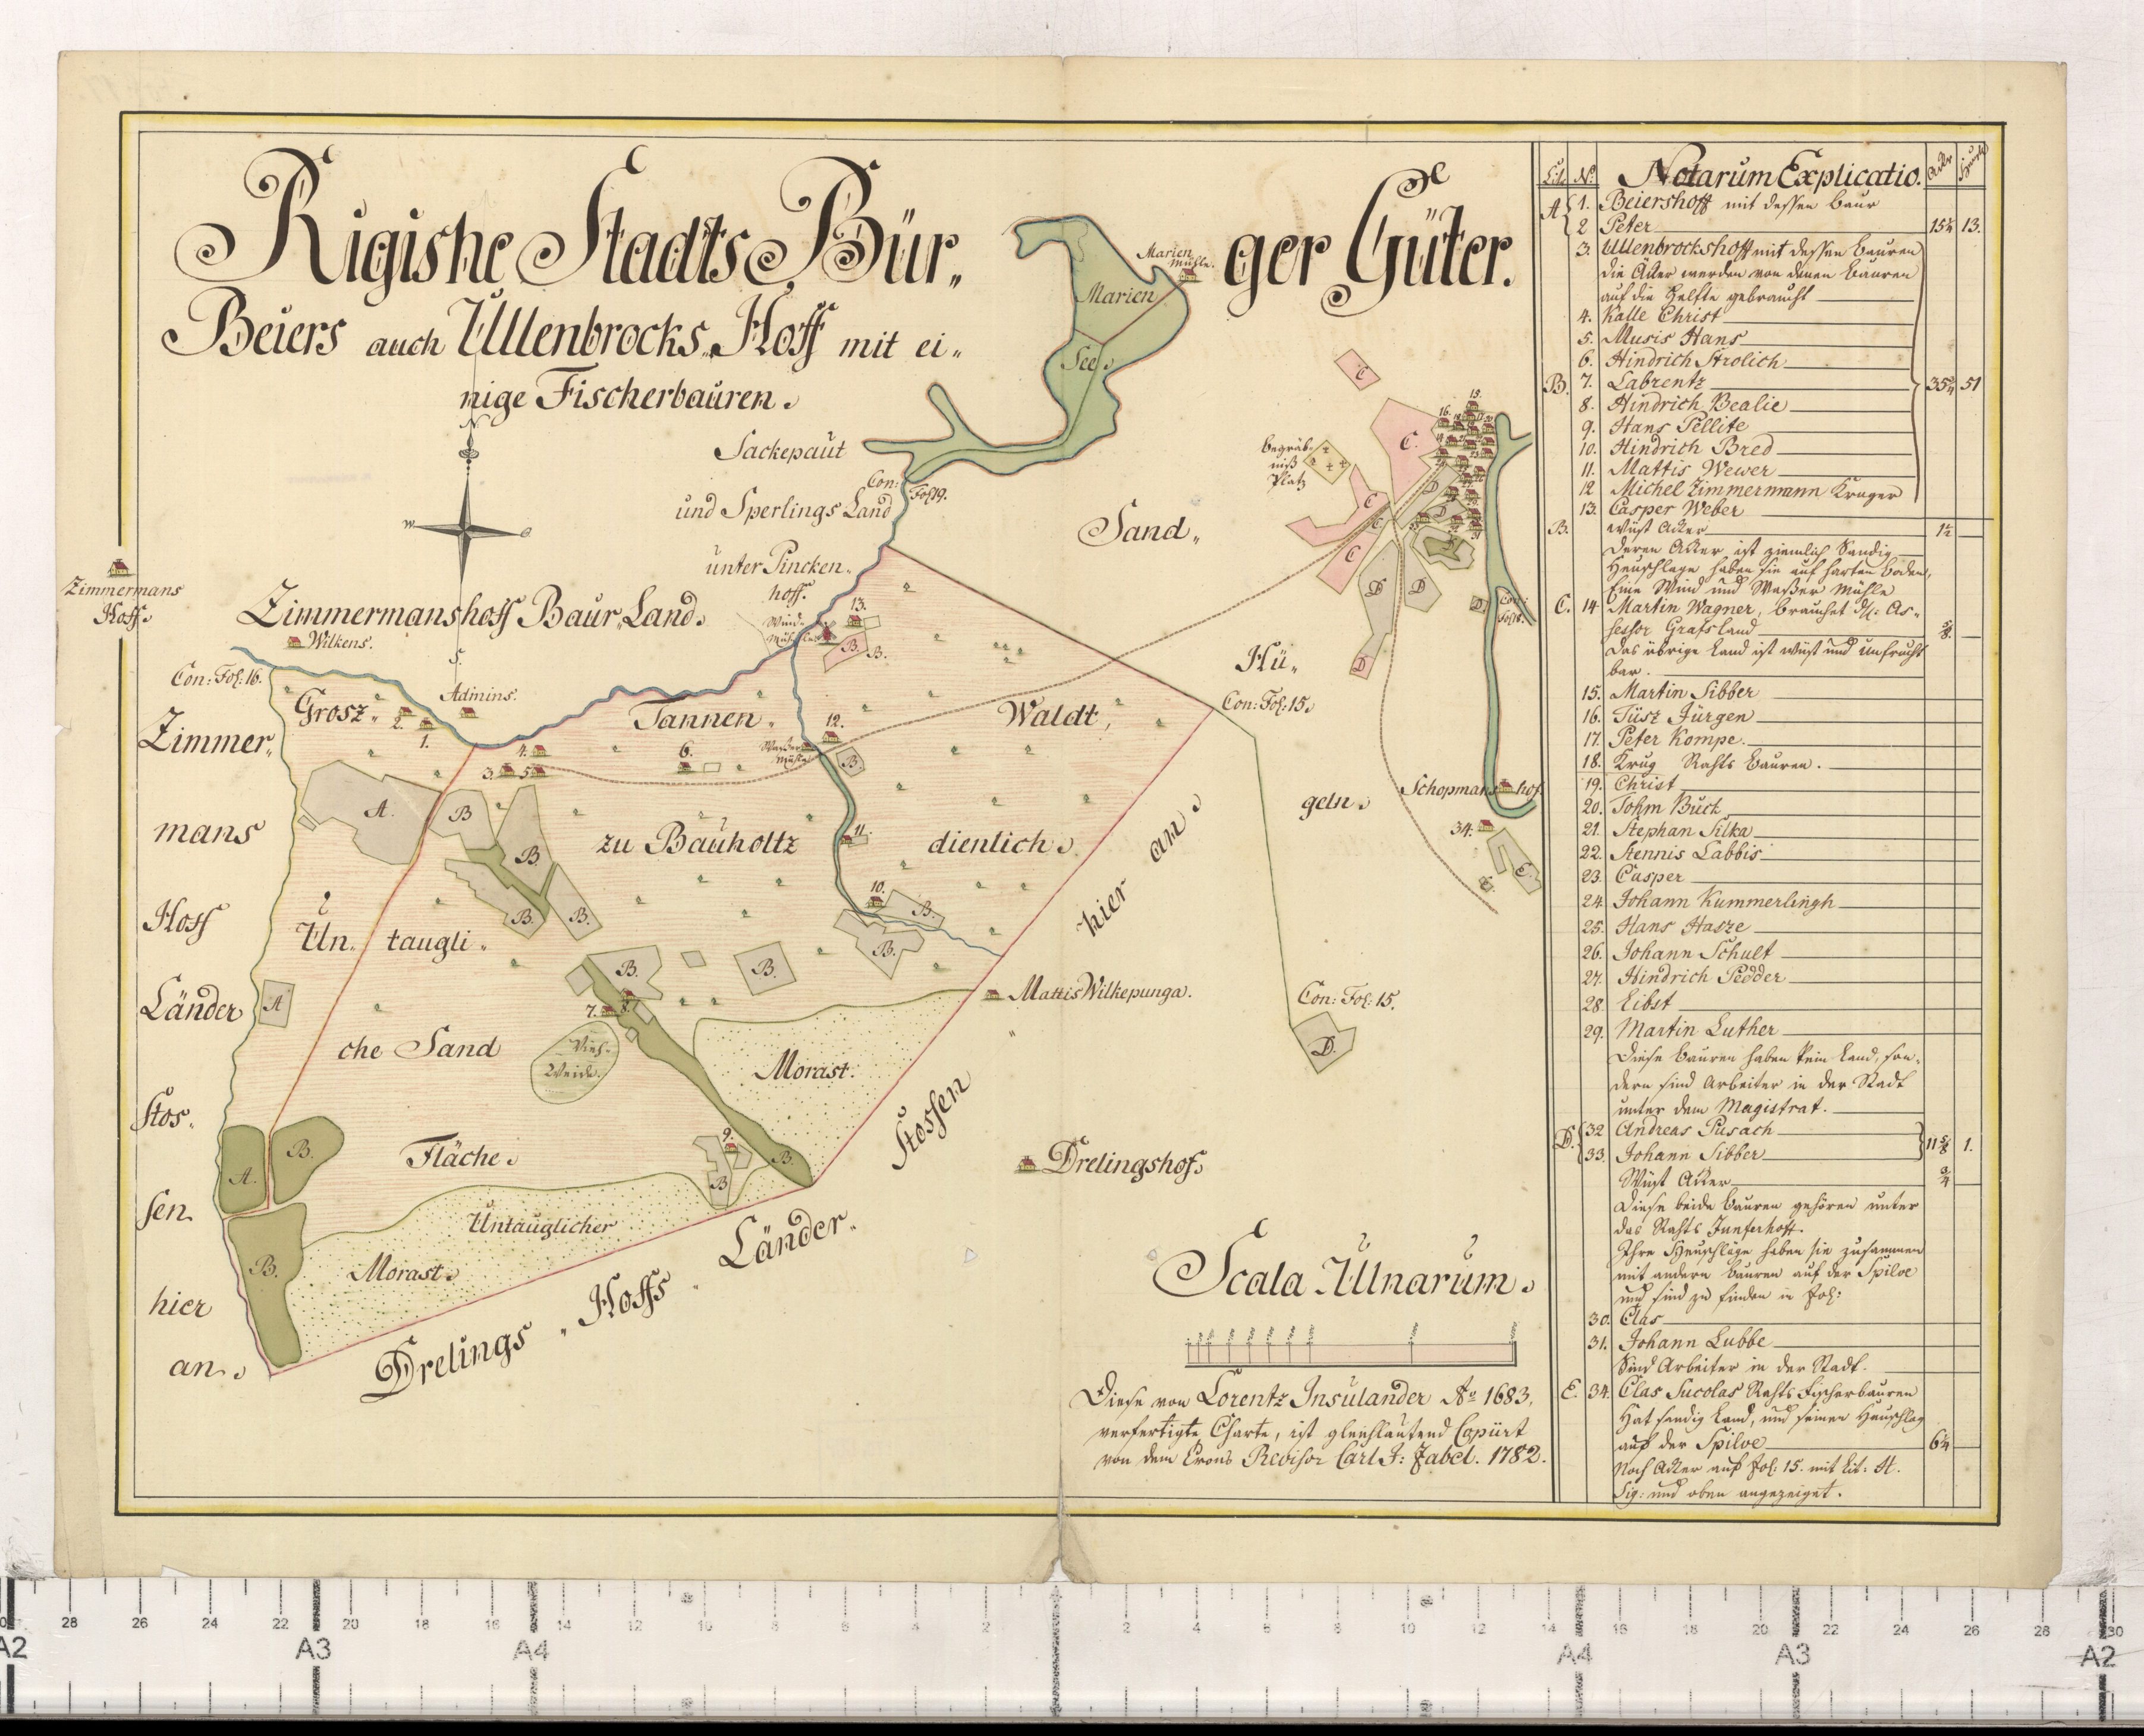 Rigishe Stadts Bür„ ger Güter.
Beiers auch Ullenbrocks„Hoff mit ei„
nige Fischerbauren.
N
W
O
S.
Marien
Mühle.
Marien
See.
Sackepaut
Con: Fol 19.
und Sperlings Land
unter Pincken„
hoff.
Wind
Mühle
13.
B.
B.
Zimmermans
Hoff.
Zimmermanshoff Baur„Land.
Wilkens.
Con: Fol: 16.
Adinins.
Grosz„
2.
1.
Tannen„
Waldt,
12.
Waßer
Mühle
B.
3.
4.
5.
6.
Zimmer„
mans
Hoff
Länder
Stos„
sen
hier
an.
A.
B
B
B.
B.
zu Bauholtz
dienlich.
11.
10.
B.
B.
Un„ taugli„
che Sand
Fläche.
A
B.
B.
7.
8.
Vieh-
Weide.
Morast.
9.
B
B.
A.
B.
B.
Untauglicher
Morast.
Drelings„ Hoffs„ Länder„
Stossen
hier an.
Mattis Wilkepunga.
Drelingshof.
Sand„
Hü„
geln.
Con: Fol: 15.
Con: Fol: 15.
D.
Begräb-
niß
Platz
C
C.
C
C
C
15.
16.
D
D
D
D
D
D
Con:
Fol 18.
Schopmans hof.
34.
E.
E.
Scala Ulnarum.
Diese von Lorentz Insulander Ao 1683,
verfertigte Charte, ist gleichlautend Copiirt
von dem Crons Revisor Carl F: Zabel. 1782.
Lit. No. Notarum Explicatio. Acker Heuschl
A 1. Beiershoff mit dessen Baur
2 Peter 15¼ 13.
3. Ullenbrockshoff mit dessen Bauren
die Äcker werden von denen Bauren
auf die Helfte gebraucht
4. Kalle Christ
5. Musis Hans
6. Hindrich Strolich
B. 7. Labrentz 35¾ 51
8. Hindrich Bealie
9. Hans Pellite
10. Hindrich Bred
11. Mattis Wewer
12 Michel Zimmermann Krüger
13. Casper Weber
B. Wüst Acker 1½
Deren Acker ist ziemlich Sandig
Heuschlage haben sie auf harten Boden,
Eine Wind und Waßer Mühle
C. 14 Martin Wagner, brauchet As„
sessor Grafs Land
Das übrige Land ist wüst und unfrucht
bar.
15. Martin Sibber
16. Tüsz Jürgen
17. Peter Kompe.
18. Krug Rahts Bauren.
19. Christ
20. Tohm Buck
21. Stephan Silka
22. Stennis Labbis
23. Casper
24. Johann Kummerlingh
25. Hans Hasze
26. Johann Schult
27. Hindrich Pedder
28 Eibst
29. Martin Luther
Diese Bauren haben kein Land, son„
dern sind Arbeiter in der Stadt
unter dem Magistrat.
D. 32 Andreas Pusach
33. Johann Sibber 11⅝ 1.
Wüst Acker ¾
Diese beide Bauren gehören unter
das Rahts Junferhoff.
Ihre Heuschläge haben sie zusammen
mit andern Bauren auf der Spilve
und sind zu finden in Fol:
30. Clas
31. Johann Lubbe
Sind Arbeiter in der Stadt.
E. 34. Clas Sucolas Rahts Fischerbauren
Hat sandig Land, und seinen Heuschlag
auf der Spilve 6¼
Noch Acker auf Fol: 15. mit Lit: A.
Sig: und oben angezeiget.
28 26 24 22 20 18 16 14 12 10 8 6 4 2 2 4 6 8 10 12 14 16 18 20 22 24 26 28 30
A2 A3 A4 A4 A3 A2